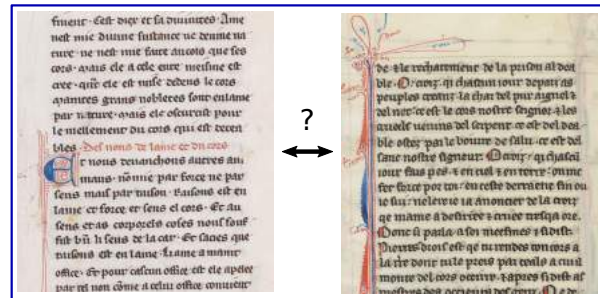 frment · Cest diex et sa diuinites · Ame
nest mie diuine sustance ne demne na
ture · ne nest mie faite ancois que ses
cors · mais ele a cele eure meisme est
cree · qñt ele est mise dedens le cors
maintes grans nobletes sont en lame
par nature · mais ele oscurist pour
le mellement du cors qui est
bles · Des nons de lame et du cors
Et nous deuanchons autres ani
maus · nonnie par force ne par
sens mais par raison · Raisons est en
lame et force et sens el cors · Et au
sens et as corporels coses nous
fist bñ li sens de la car · Et sacies que
raisons est en lame · Lame a maint
office · Et por cascun office est ele apelee
par tel non cõme a celui office conuient
?
de · & le rachatement de la prison al dea
ble · O croiz qi chascun iour depart as
peuples la char del pur aignel &
del · ce est li cors nostre seignor & les
uenins del serpent ce est del dea
ble oster par le boiure de salu · ce est del
sanc nostre seignour O croiz · qi chascũ
iour et en ciel & en terre
fer force por toi · en ceste derraeine fin ou
ie sui · a la noncier de la croiz
qe mame a desirree &
Donc si parla a soi meesmes & si dist
Pierres dont est qe tu rendes ton cors a
la mort dont tu le preis par
monte del cors ocirre · & apres si dist as